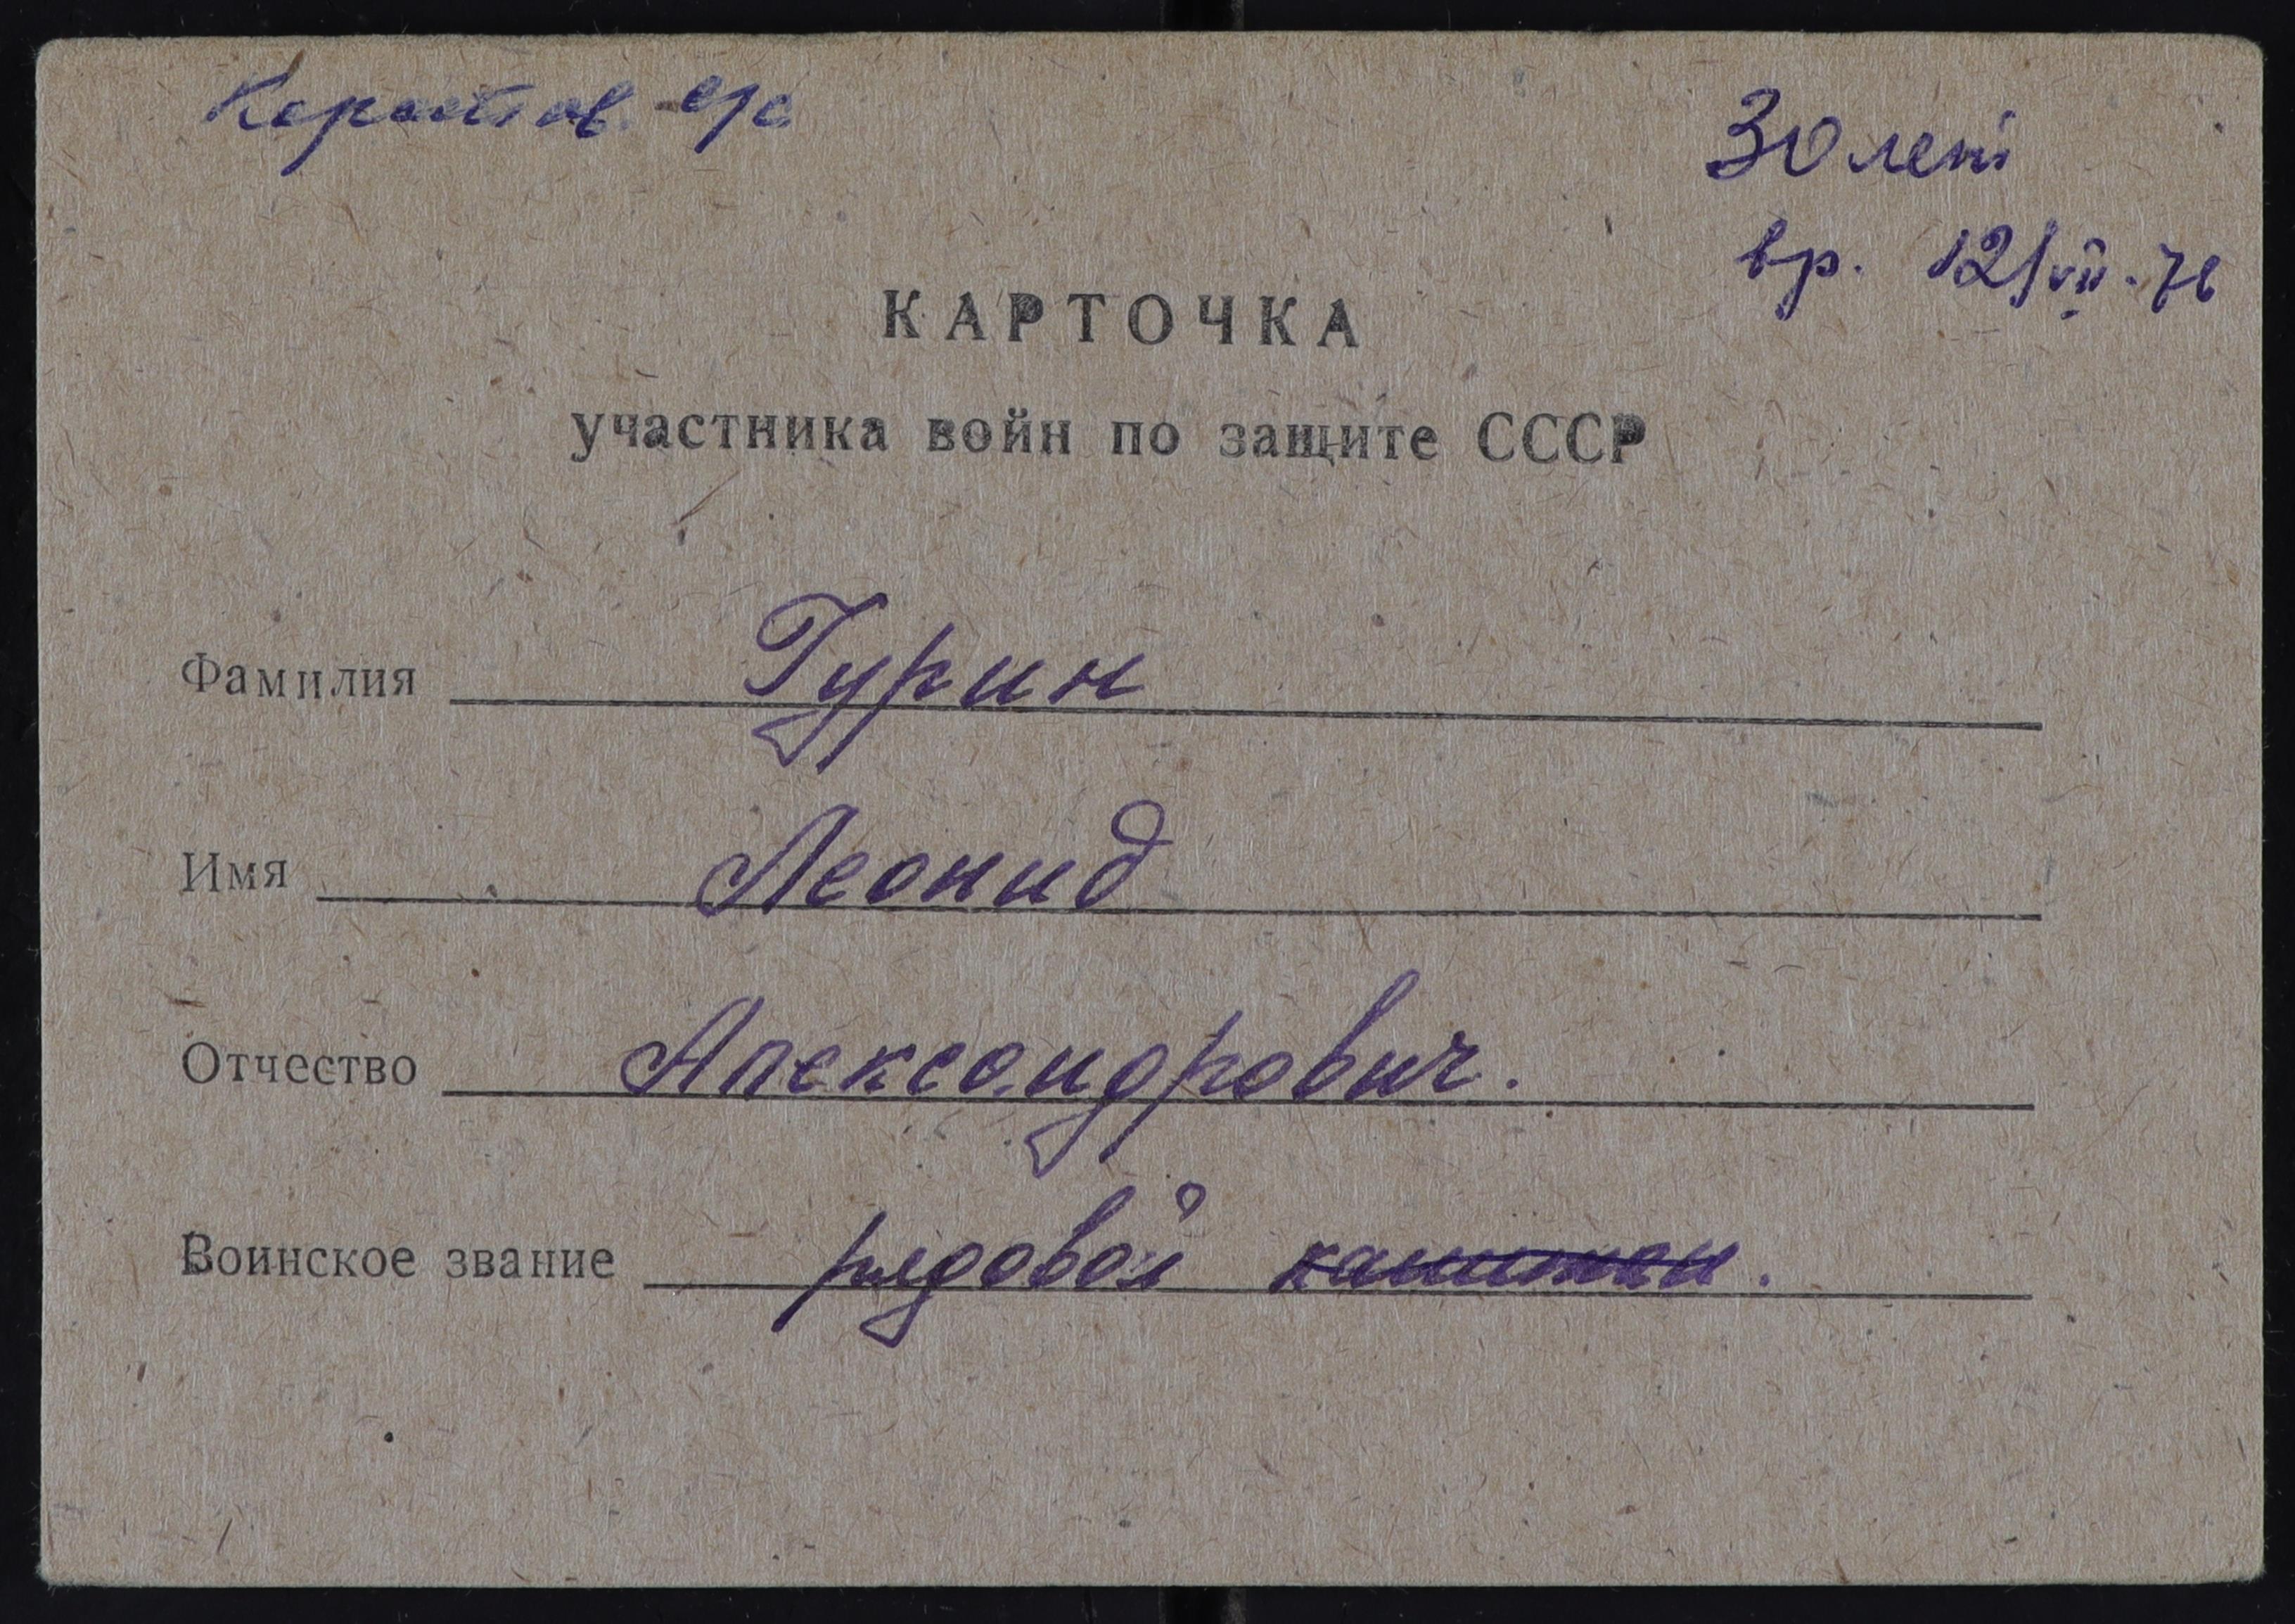 с/с
30 лет
вр. 12/VII-76
КАРТОЧКА
участника войн по защите СССР
Фамилия Гурин
Имя Леонид
Отчество Александрович.
Воинское звание рядовой капитан.